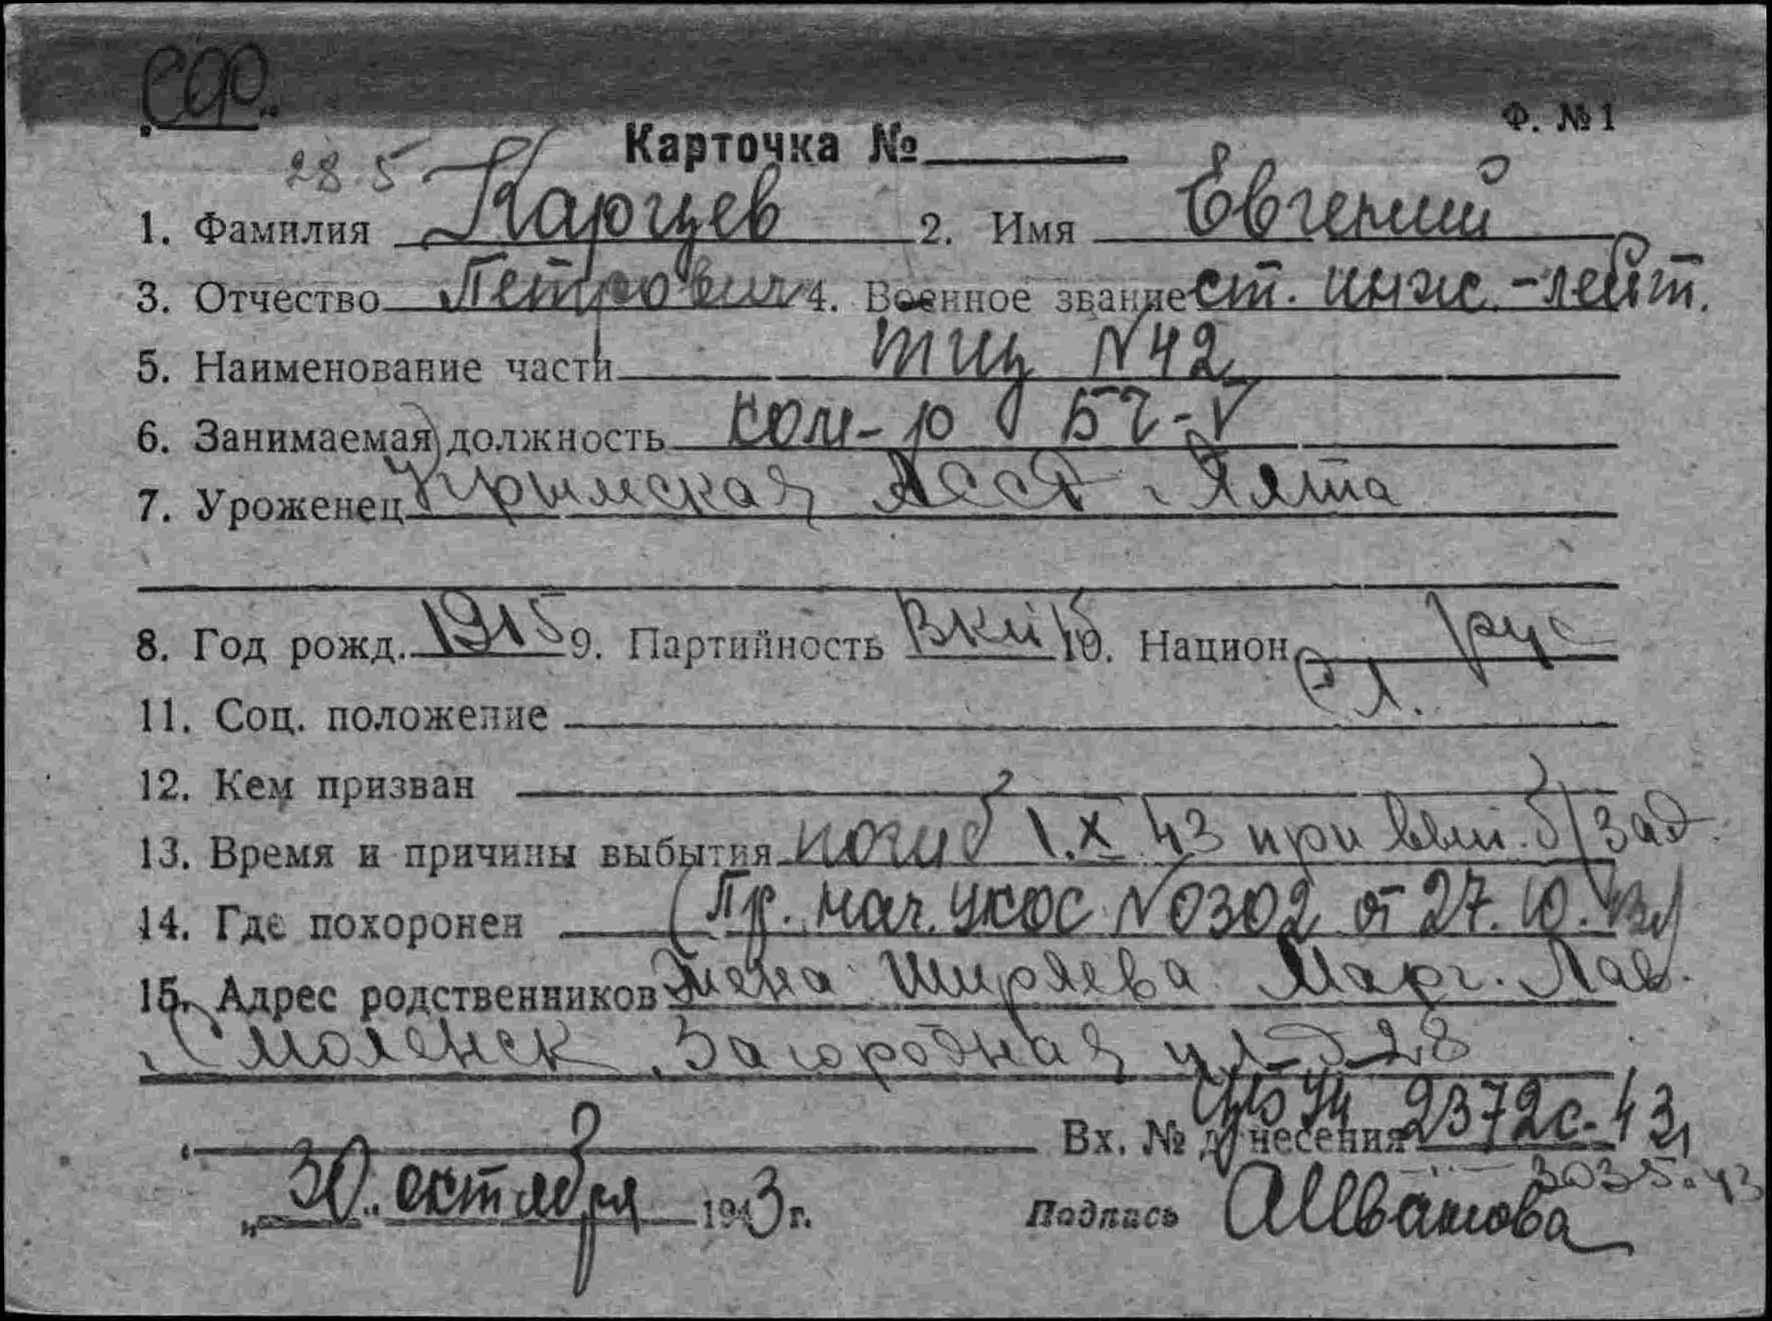 Ф. № 1
Карточка №
285
1. Фамилия Карцев 2. Имя Евгений
3. Отчество Петрович 4. Военное звание ст. инж.-лейт.
5. Наименование части ТЩ N 42
6. Занимаемая должность ком-р БЧ-V
7. Уроженец Крымская АССР г Ялта
8. Год рожд. 1915 9. Партийность ВКПб 10. Национ. рус
11. Соц. положение
12. Кем призван
13. Время и причины выбытия погиб 1.X 43 при вып. б/зад.
14. Где похоронен (Пр. нач. УКОС N 0302 от 27.10.43г)
15. Адрес родственников Жена Ширяева Марг. Пав.
г Смоленск, Загородная ул д 28
Вх. № донесения 2372с-43
3035.43
„30" октября 1943 г. Подпись